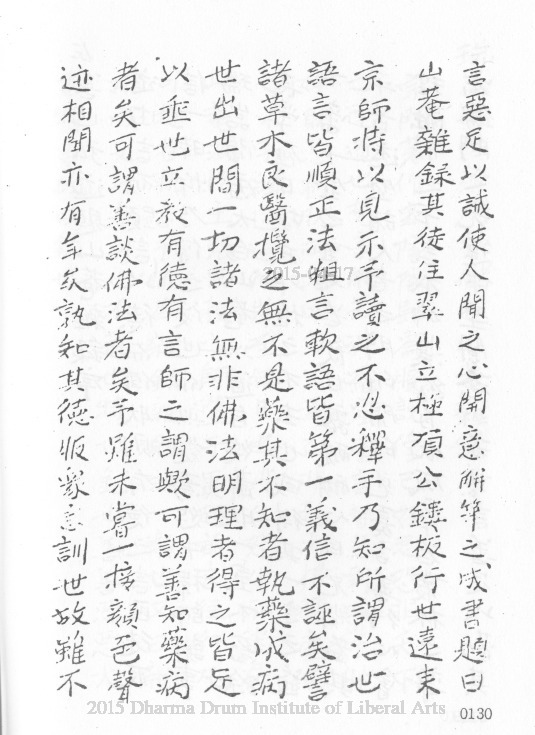 言惡足以誠使人聞之心開意解筆之成書題曰
山菴雜録其徒住翠山立極頂公鏤板行世遠来
京師特以見示予讀之不忍釋手乃知所謂治世
語言皆順正法粗言軟語皆第一義信不誣矣譬
諸草木良醫攬之無不是藥其不知者執藥成病
世出世間一切諸法無非佛法明理者得之皆足
以垂世立教有德有言師之謂歟可謂善知藥病
者矣可謂善談佛法者矣予雖未嘗一接顔色聲
迹相聞亦有年矣孰知其德販衆言訓世故雖不
2015-04-17
2015 Dharma Drum Institute of Liberal Arts
0130